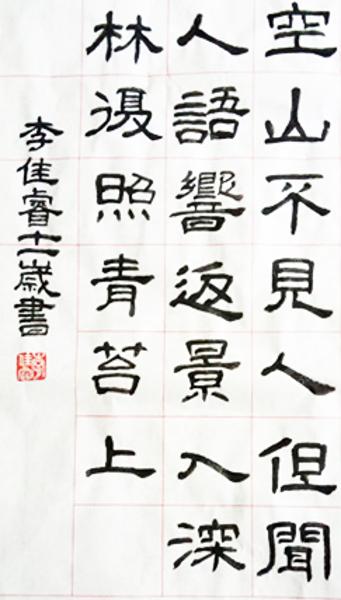 空山不見人但聞
人語響返景入深
林復照青苔上
李佳睿十一歲書